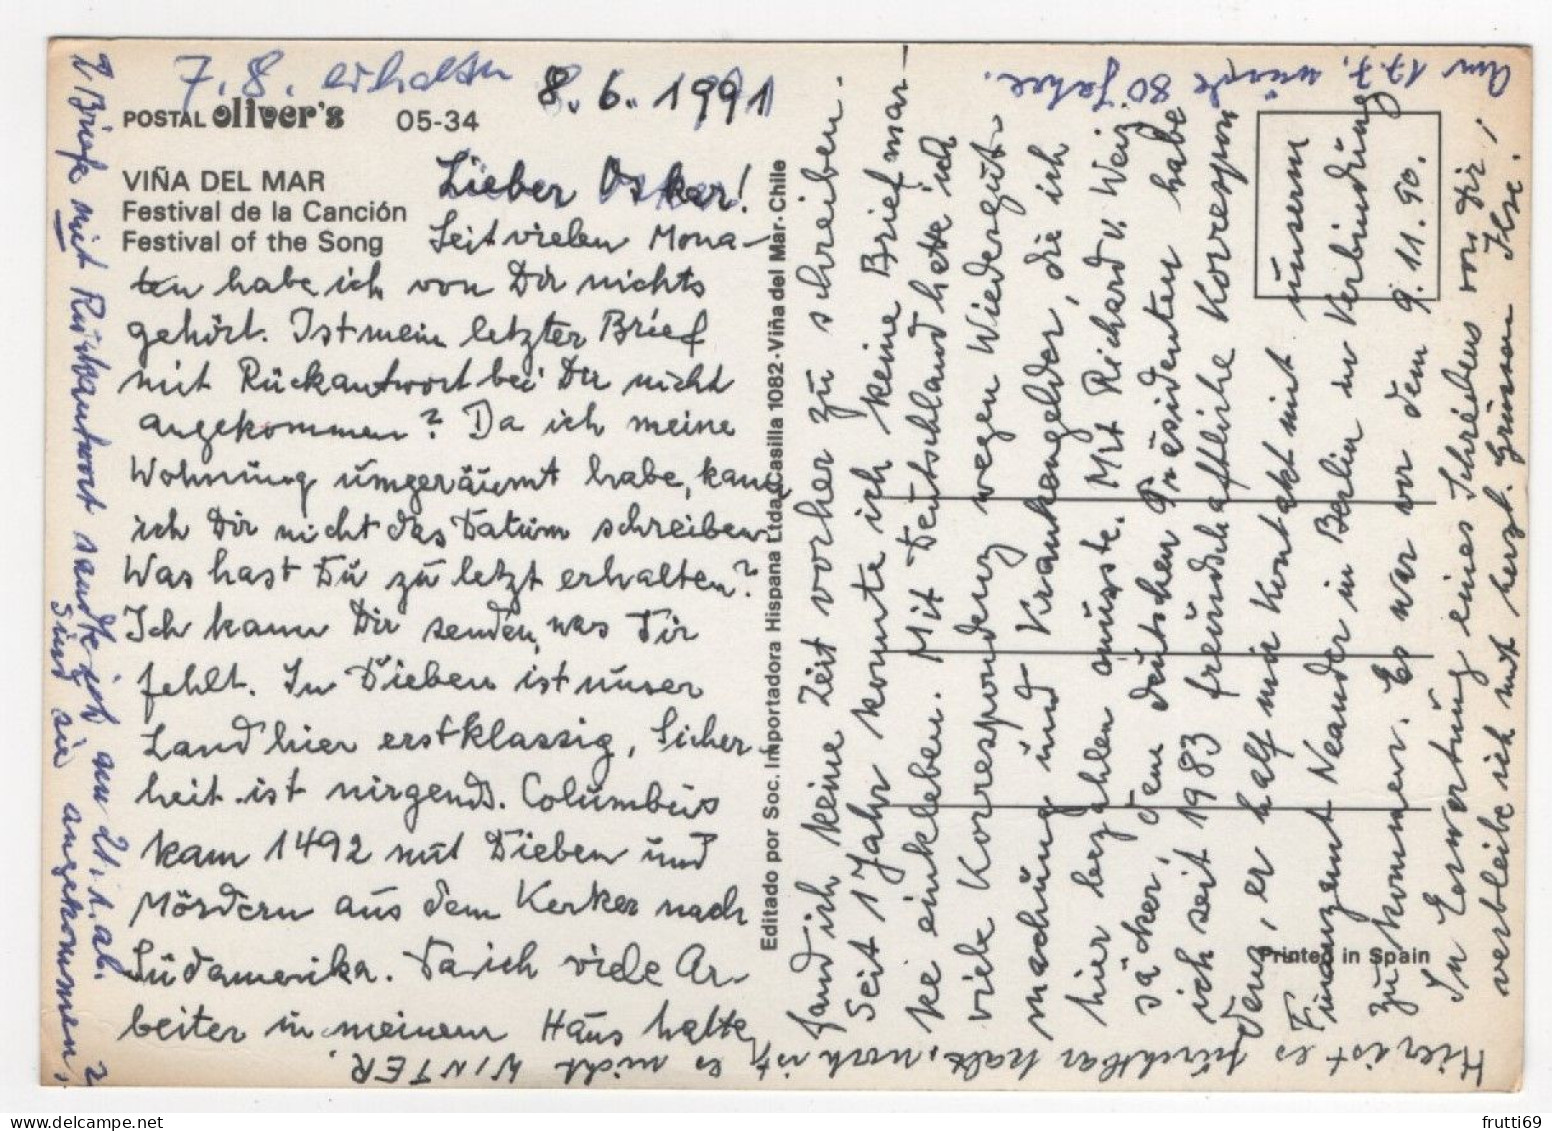 7. 8. erhalten
8. 6. 1991
POSTAL oliver's 05-34
VIÑA DEL MAR
Festival de la Canción
Festival of the Song
Lieber Oskar!
Seit vielen Mona-
ten habe ich von Dir nichts
gehört. Ist mein letzter Brief
mit Rückantwort bei Dir nicht
angekommen? Da ich meine
Wohnung umgeräumt habe, kann
ich Dir nicht das Datum schreiben
Was hast Du zu letzt erhalten?
Ich kann Dir senden, was Dir
fehlt. In Dieben ist unser
Land hier erstklassig, Sicher-
heit ist nirgends. Columbus
kam 1492 mit Dieben und
Mördern aus dem Kerker nach
Südamerika. Da ich viele Ar-
beiter in meinem Haus hatte,
fand ich keine Zeit vorher zu schreiben.
Seit 1 Jahr konnte ich keine Briefmar-
ke einkleben. Mit Deutschland hatte ich
viele Korrespondenz wegen Wiedergut-
machung und Krankengelder, die ich
hier bezahlen musste. Mit Richard v. Weiz
säcker, dem deutschen Präsidenten habe
ich seit 1983 freundschaftliche Korrespon
denz, er half mir Kontakt mit unserm
Finanzamt Neander in Berlin in Verbindung
zu kommen. Es war vor dem 9. 11. 90.
In Erwartung eines Schreibens von Dir,
verbleibe ich mit herzl. Grüssen Ilse.
Hier ist es furchtbar kalt, noch ist
es nicht WINTER.
Am 17. 7. wurde 80 Jahre.
2 Briefe mit Rückantwort sandte ich am 21. 1. ab.
Sind sie angekommen?
Editado por Soc. Importadora Hispana Ltda. Casilla 1082 - Viña del Mar - Chile
Printed in Spain
frutti69